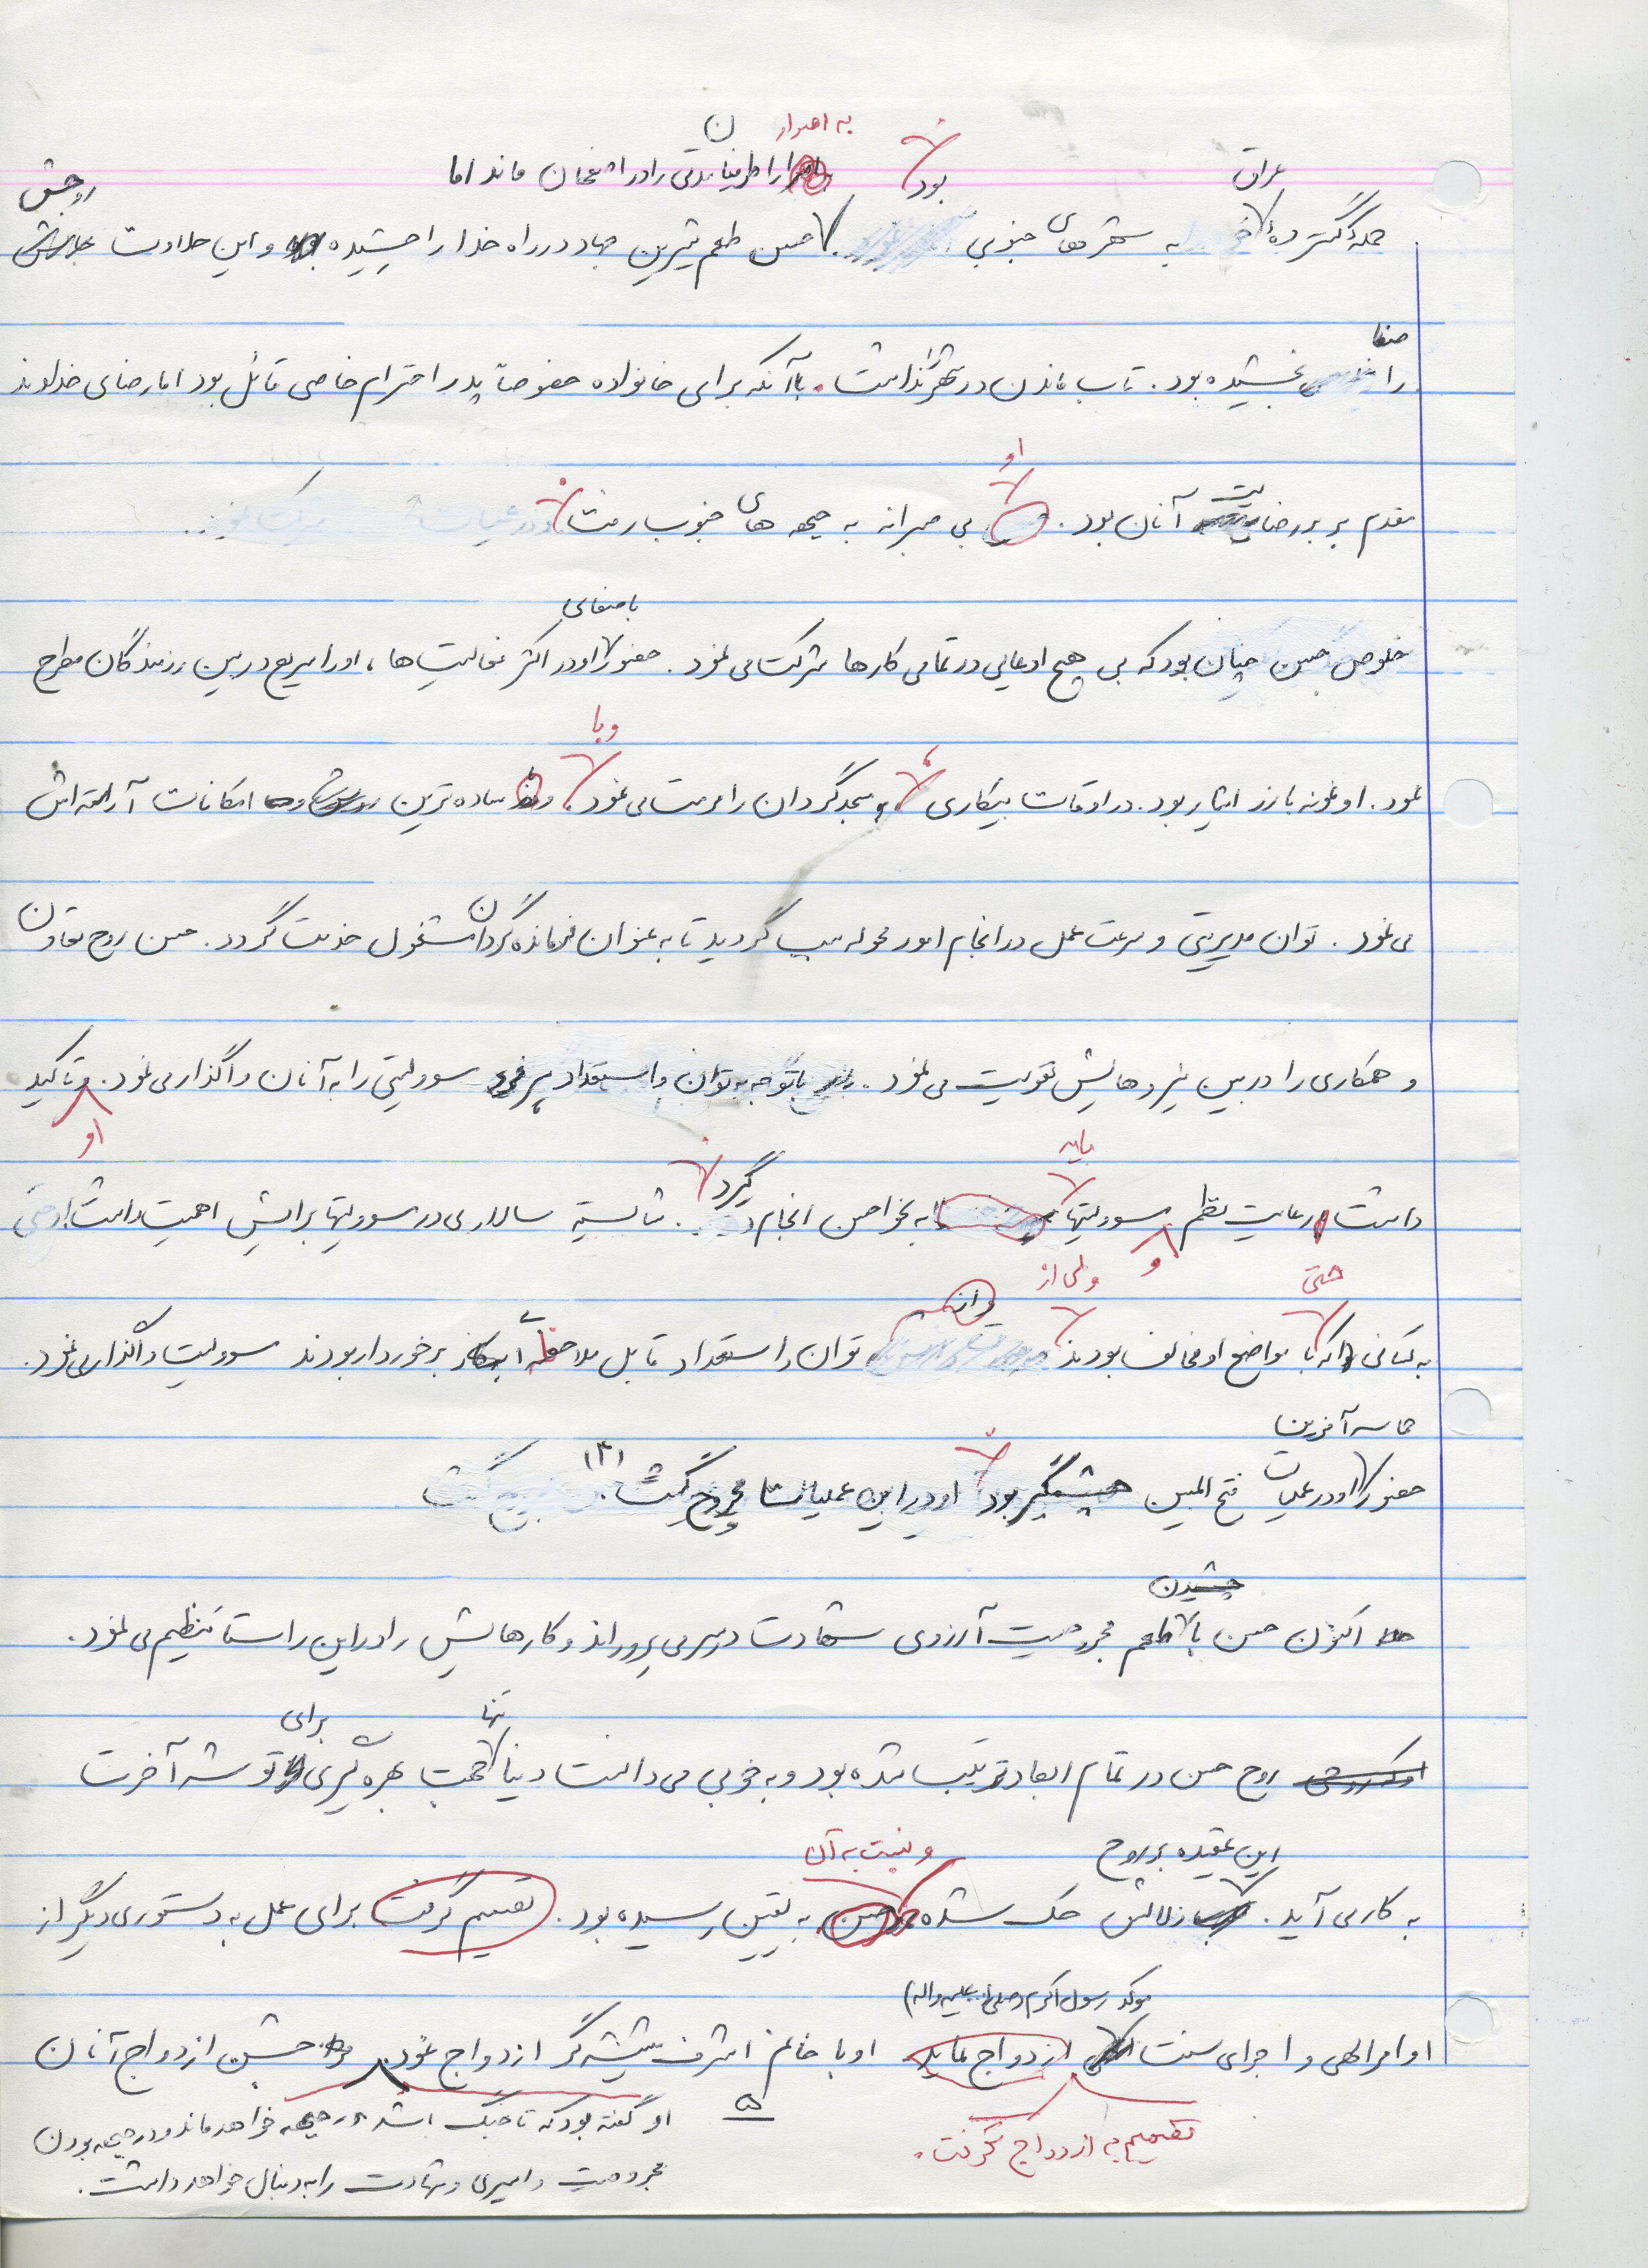 به اصرار
بود
اطرافیان مدتی را در اصفهان ماند اما
عراق
روحش
حمله گسترده به شهرهای جنوبی حسن طعم شیرین جهاد در راه خدا را چشیده بود و این حلاوت
صفا
را بخشیده بود. تاب ماندن در شهر نداشت. با آنکه برای خانواده خصوصاً پدر احترام خاصی قائل بود اما رضای خداوند
او
مقدم بر بر رضایت آنان بود. بی صبرانه به جبهه های جنوب رفت
با صفای
خلوص حسن چنان بود که بی هیچ ادعایی در تمامی کارها شرکت می نمود. حضور او در اکثر فعالیت ها، او را سریع در بین رزمندگان مطرح
و با
نمود. او نمونه بارز ایثار بود. در اوقات بیکاری، مسجد گردان را مرمت می نمود ساده ترین امکانات آراسته اش
می نمود. توان مدیریتی و سرعت عمل در انجام امور محوله سبب گردید تا به عنوان فرمانده گردان مشغول خدمت گردد. حسن روح تعاون
و همکاری را در بین نیروهایش تقویت می نمود. با توجه به توان و استعداد هر فرد سوولیتی را به آنان واگذار می نمود. و تاکید
او
باید
داشت رعایت نظم و سوولیتها به نحو احسن انجام گیرد. شایسته سالاری در سوولیتها برایش اهمیت داشت او حتی
حتی
ولی از
به کسانی که با مواضع او مخالف بودند توان و استعداد قابل ملاحظه ای برخوردار بودند سوولیت واگذار می نمود.
حماسه آفرین
حضور او در عملیات فتح المبین چشمگیر بود او در این عملیات مجروح گشت. (۳)
چشیدن
اکنون حسن با طعم مجروحیت آرزوی شهادت در سر می پروراند و کارهایش را در این راستا تنظیم می نمود.
تنها
برای
روح حسن در تمام ابعاد تربیت شده بود و به خوبی می دانست دنیا جهت بهره گیری توشه آخرت
این عقیده بر روح
و نسبت به آن
به کار می آید. زلالش حک شده حسن به یقین رسیده بود. تصمیم گرفت برای عمل به دستوری دیگر از
موکد رسول اکرم (صلی الله علیه و اله)
اوامر الهی و اجرای سنت ازدواج نماید او با خانم اشرف شیشه گر ازدواج نمود جشن ازدواج آنان
تصمیم به ازدواج گرفت.
۵
او گفته بود که تا جنگ باشد در جبهه خواهد ماند و در جبهه بودن
مجروحیت و اسیری و شهادت را به دنبال خواهد داشت.